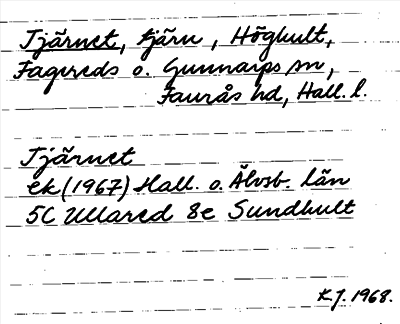 Tjärnet, tjärn, Högkult,
Fagereds o. Gunnarps sn,
Faurås hd, Hall. l.
Tjärnet
ek (1967) Hall. o. Älvsb. län
5C Ullared 8e Sundhult
K.J. 1968.